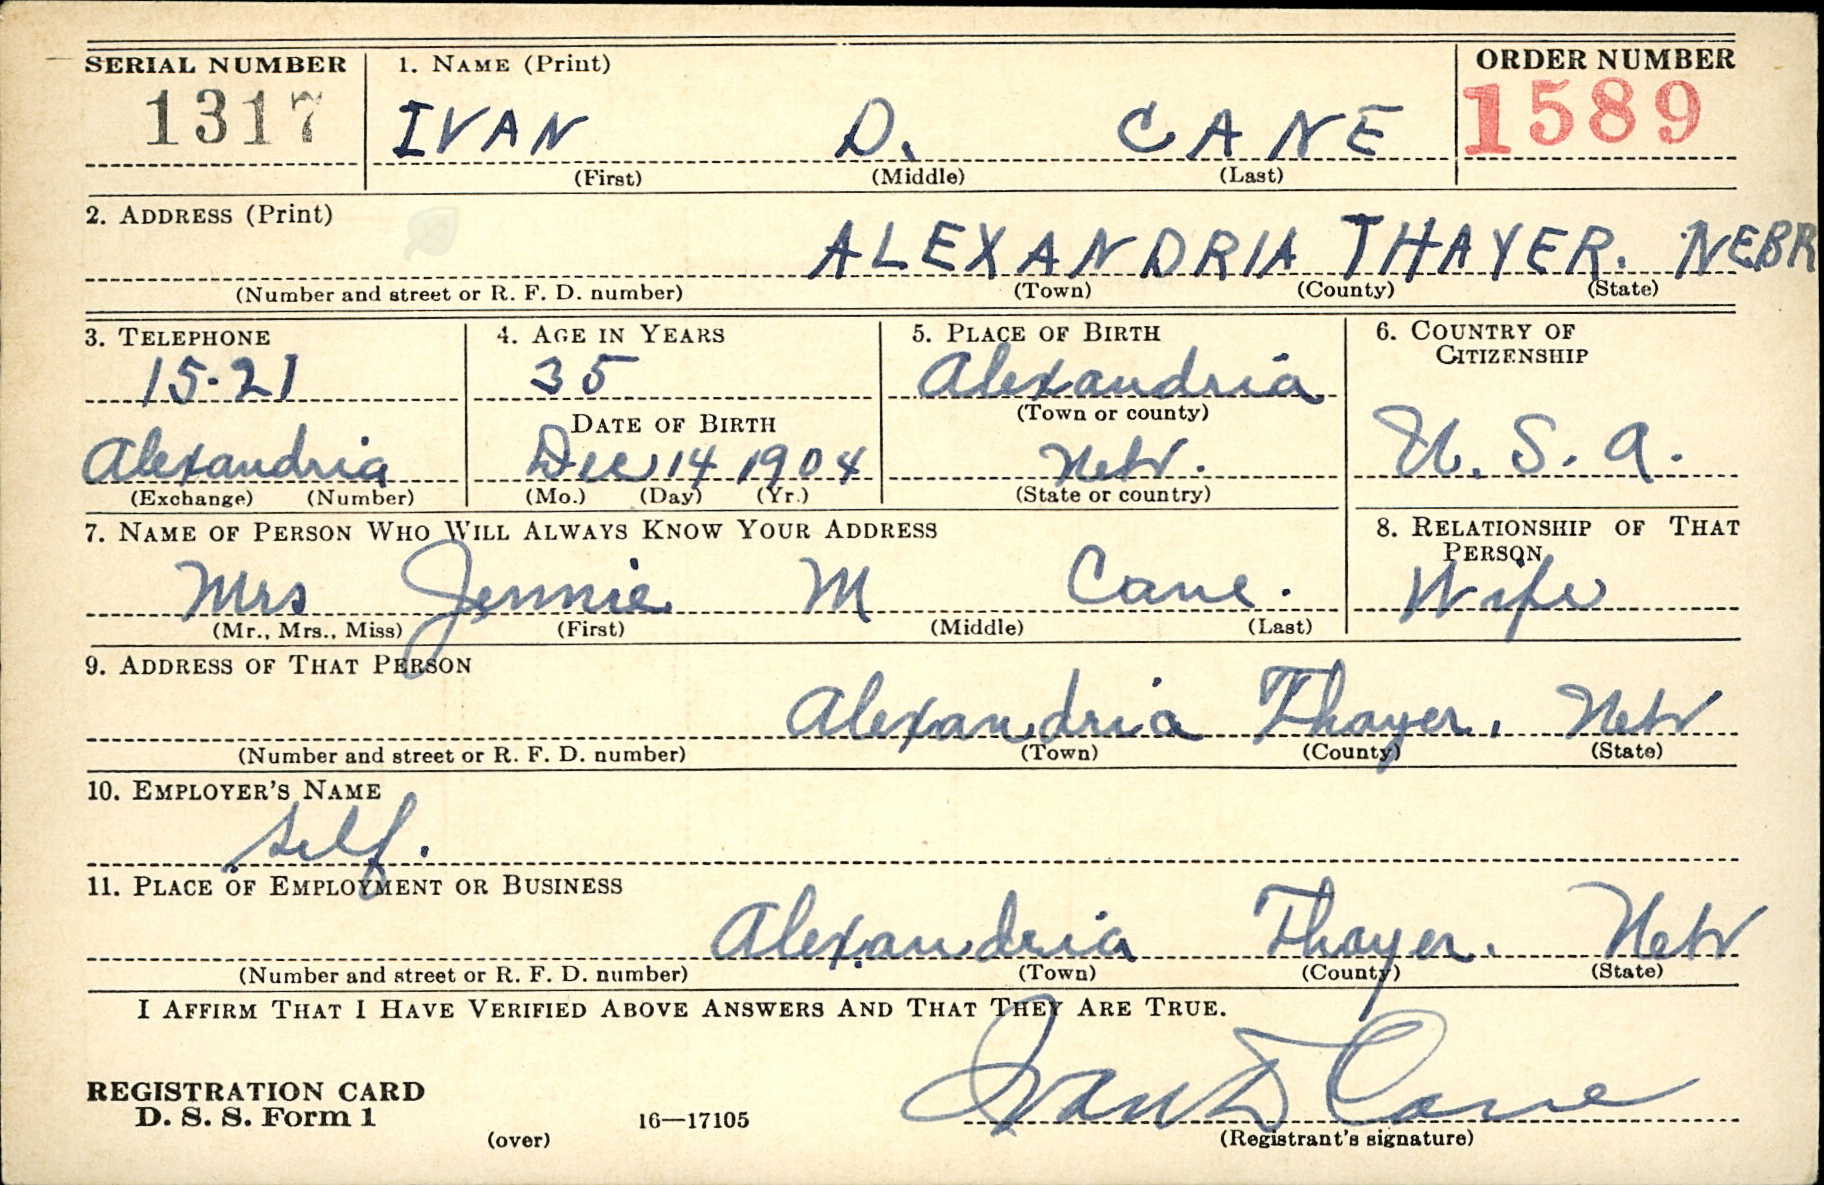 SERIAL NUMBER 1. NAME (Print) ORDER NUMBER
1317 IVAN D. CANE 1589
(First) (Middle) (Last)
2. ADDRESS (Print)
ALEXANDRIA THAYER. NEBR
(Number and street or R. F. D. number) (Town) (County) (State)
3. TELEPHONE 4. AGE IN YEARS 5. PLACE OF BIRTH 6. COUNTRY OF
CITIZENSHIP
15-21 35 Alexandria
DATE OF BIRTH (Town or county)
Alexandria Dec 14 1904 Nebr. U. S. A.
(Exchange) (Number) (Mo.) (Day) (Yr.) (State or country)
7. NAME OF PERSON WHO WILL ALWAYS KNOW YOUR ADDRESS 8. RELATIONSHIP OF THAT
PERSON
Mrs Jennie M Cane. Wife
(Mr., Mrs., Miss) (First) (Middle) (Last)
9. ADDRESS OF THAT PERSON
Alexandria Thayer. Nebr
(Number and street or R. F. D. number) (Town) (County) (State)
10. EMPLOYER'S NAME
Self.
11. PLACE OF EMPLOYMENT OR BUSINESS
Alexandria Thayer. Nebr
(Number and street or R. F. D. number) (Town) (County) (State)
I AFFIRM THAT I HAVE VERIFIED ABOVE ANSWERS AND THAT THEY ARE TRUE.
Ivan D Cane
REGISTRATION CARD
D. S. S. Form 1 16—17105
(over) (Registrant's signature)